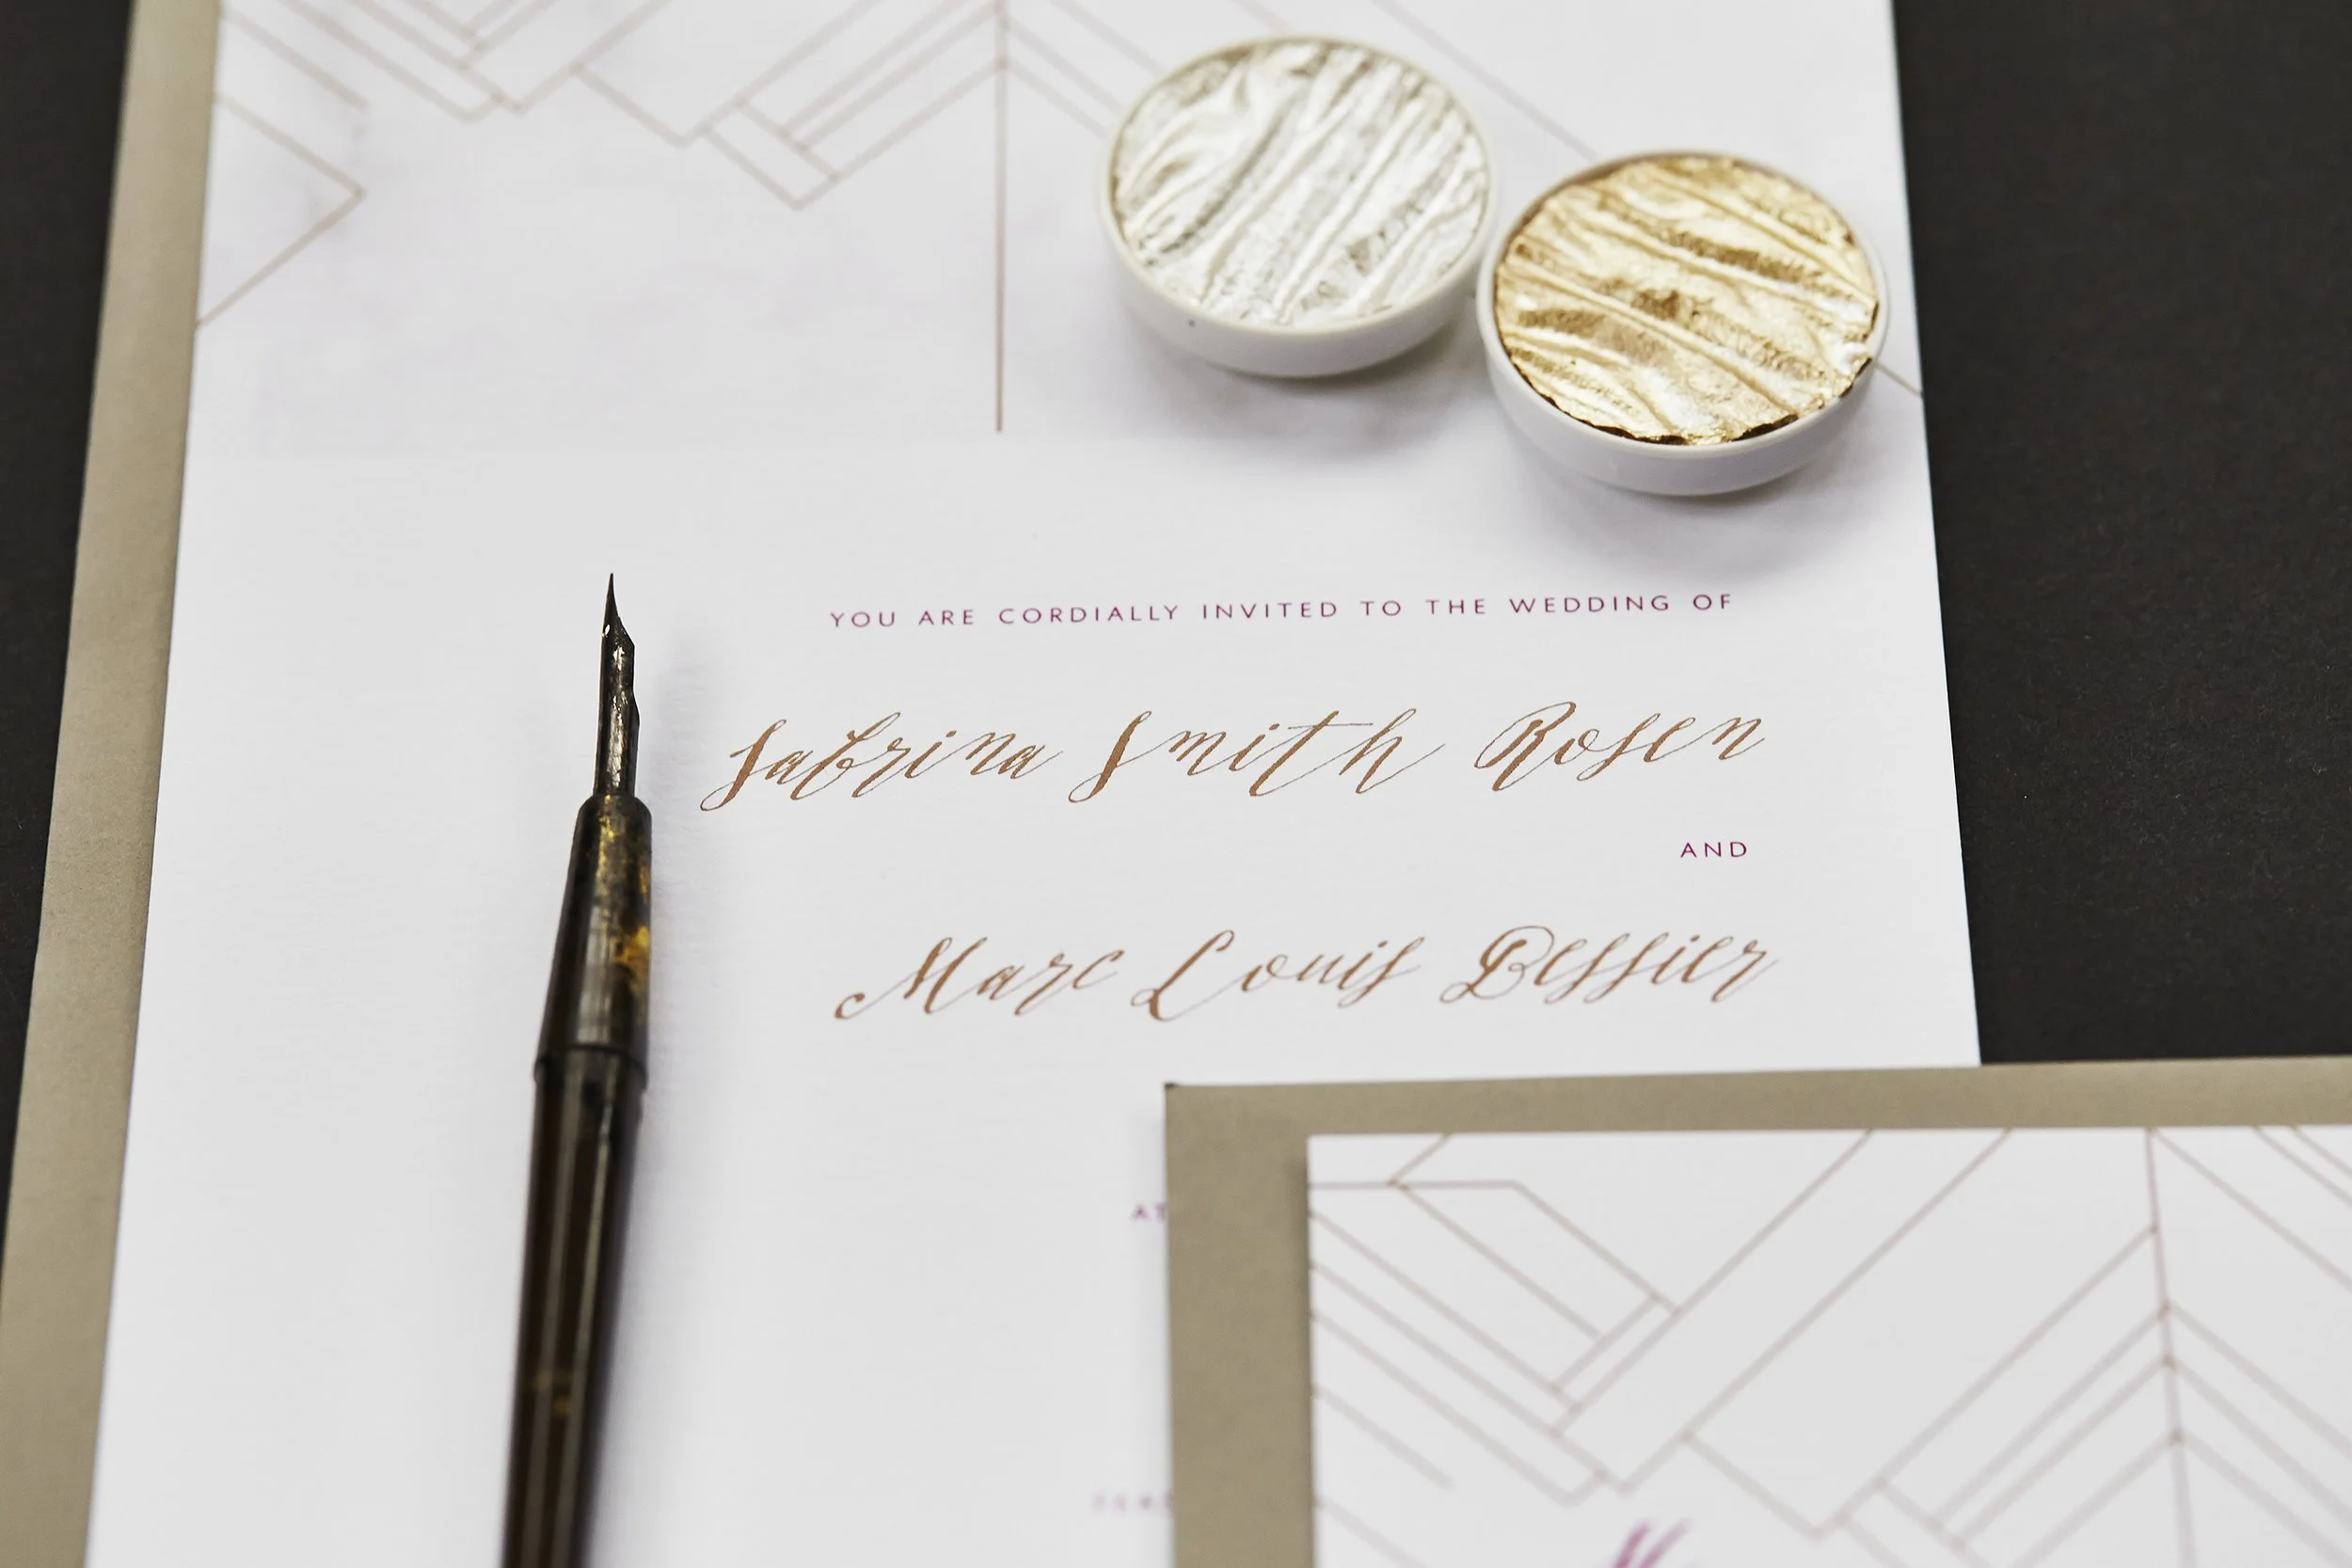 YOU ARE CORDIALLY INVITED TO THE WEDDING OF
Sabrina Smith Rosen
AND
Marc Louis Bessier
AT